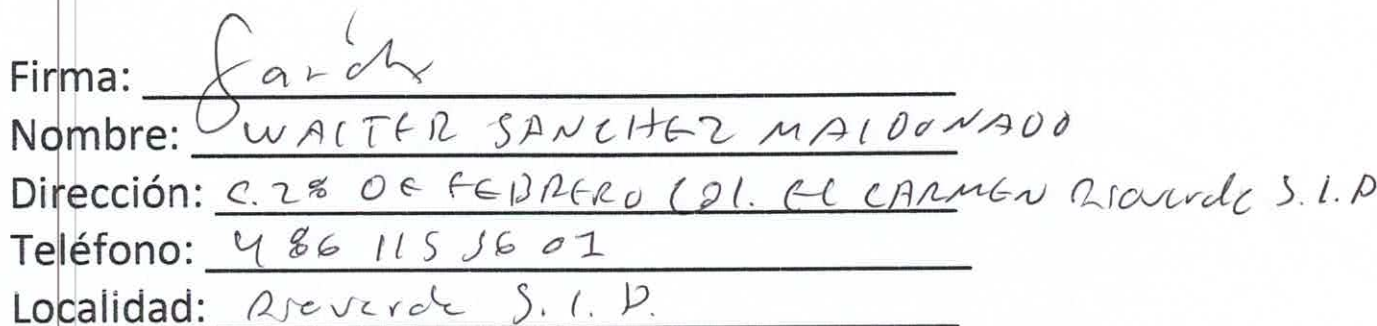 Firma: Sanch
Nombre: WALTER SANCHEZ MALDONADO
Dirección: C. 28 DE FEBRERO COL. EL CARMEN Rioverde S.L.P
Teléfono: 486 115 56 01
Localidad: Rioverde S.L.P.